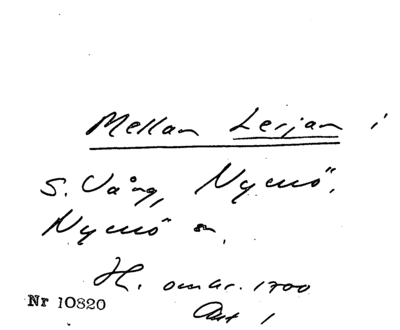 Mellan Lerjan i
S. Vång, Nymö,
Nymö sn.
H. omkr. 1700
Akt 1
Nr 10820